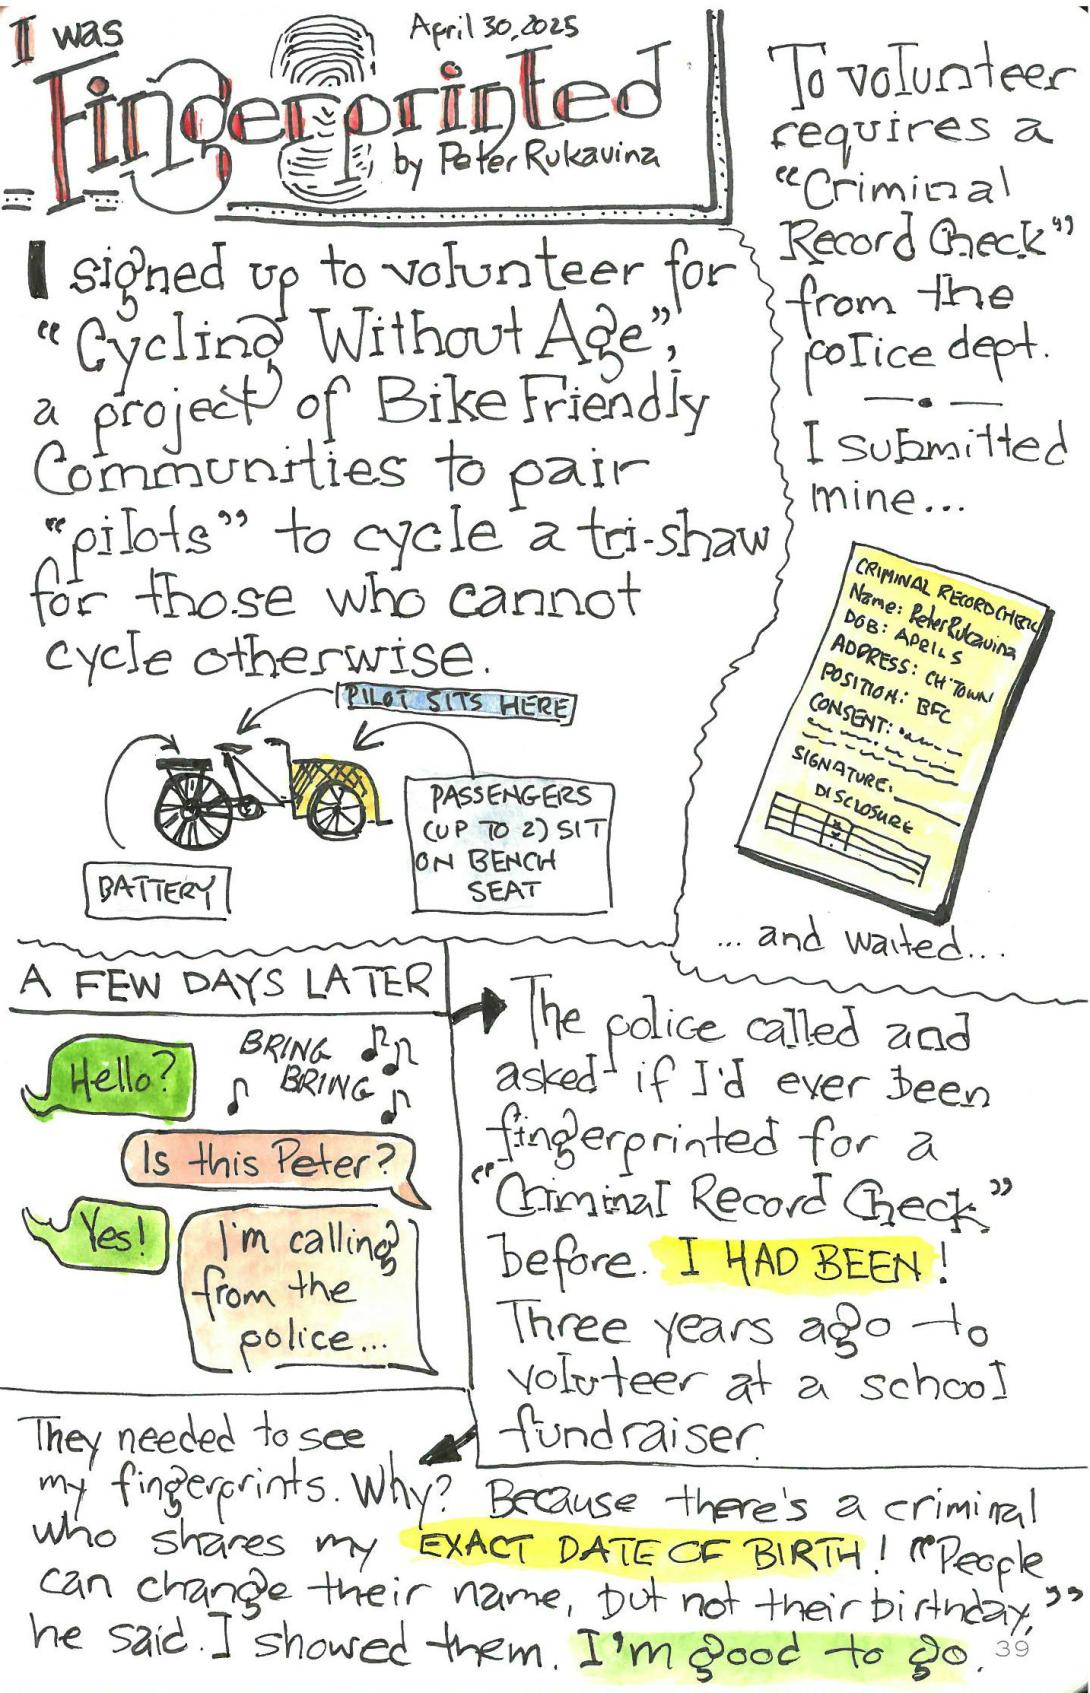 I was
April 30, 2025
Fingerprinted
by Peter Rukavina
I signed up to volunteer for
"Cycling Without Age",
a project of Bike Friendly
Communities to pair
"pilots" to cycle a tri-shaw
for those who cannot
cycle otherwise.
PILOT SITS HERE
PASSENGERS
(UP TO 2) SIT
ON BENCH
SEAT
BATTERY
To volunteer
requires a
"Criminal
Record Check"
from the
police dept.
I submitted
mine...
CRIMINAL RECORD CHECK
Name: Peter Rukavina
DOB: APRIL 5
ADDRESS: CH'TOWN
POSITION: BFC
CONSENT:
SIGNATURE:
DISCLOSURE
... and waited...
A FEW DAYS LATER
BRING
BRING
Hello?
Is this Peter?
Yes!
I'm calling
from the
police...
The police called and
asked if I'd ever been
fingerprinted for a
"Criminal Record Check"
before. I HAD BEEN!
Three years ago to
voluteer at a school
fundraiser.
They needed to see
my fingerprints. Why? Because there's a criminal
who shares my EXACT DATE OF BIRTH! "People
can change their name, but not their birthday,"
he said. I showed them. I'm good to go.
39